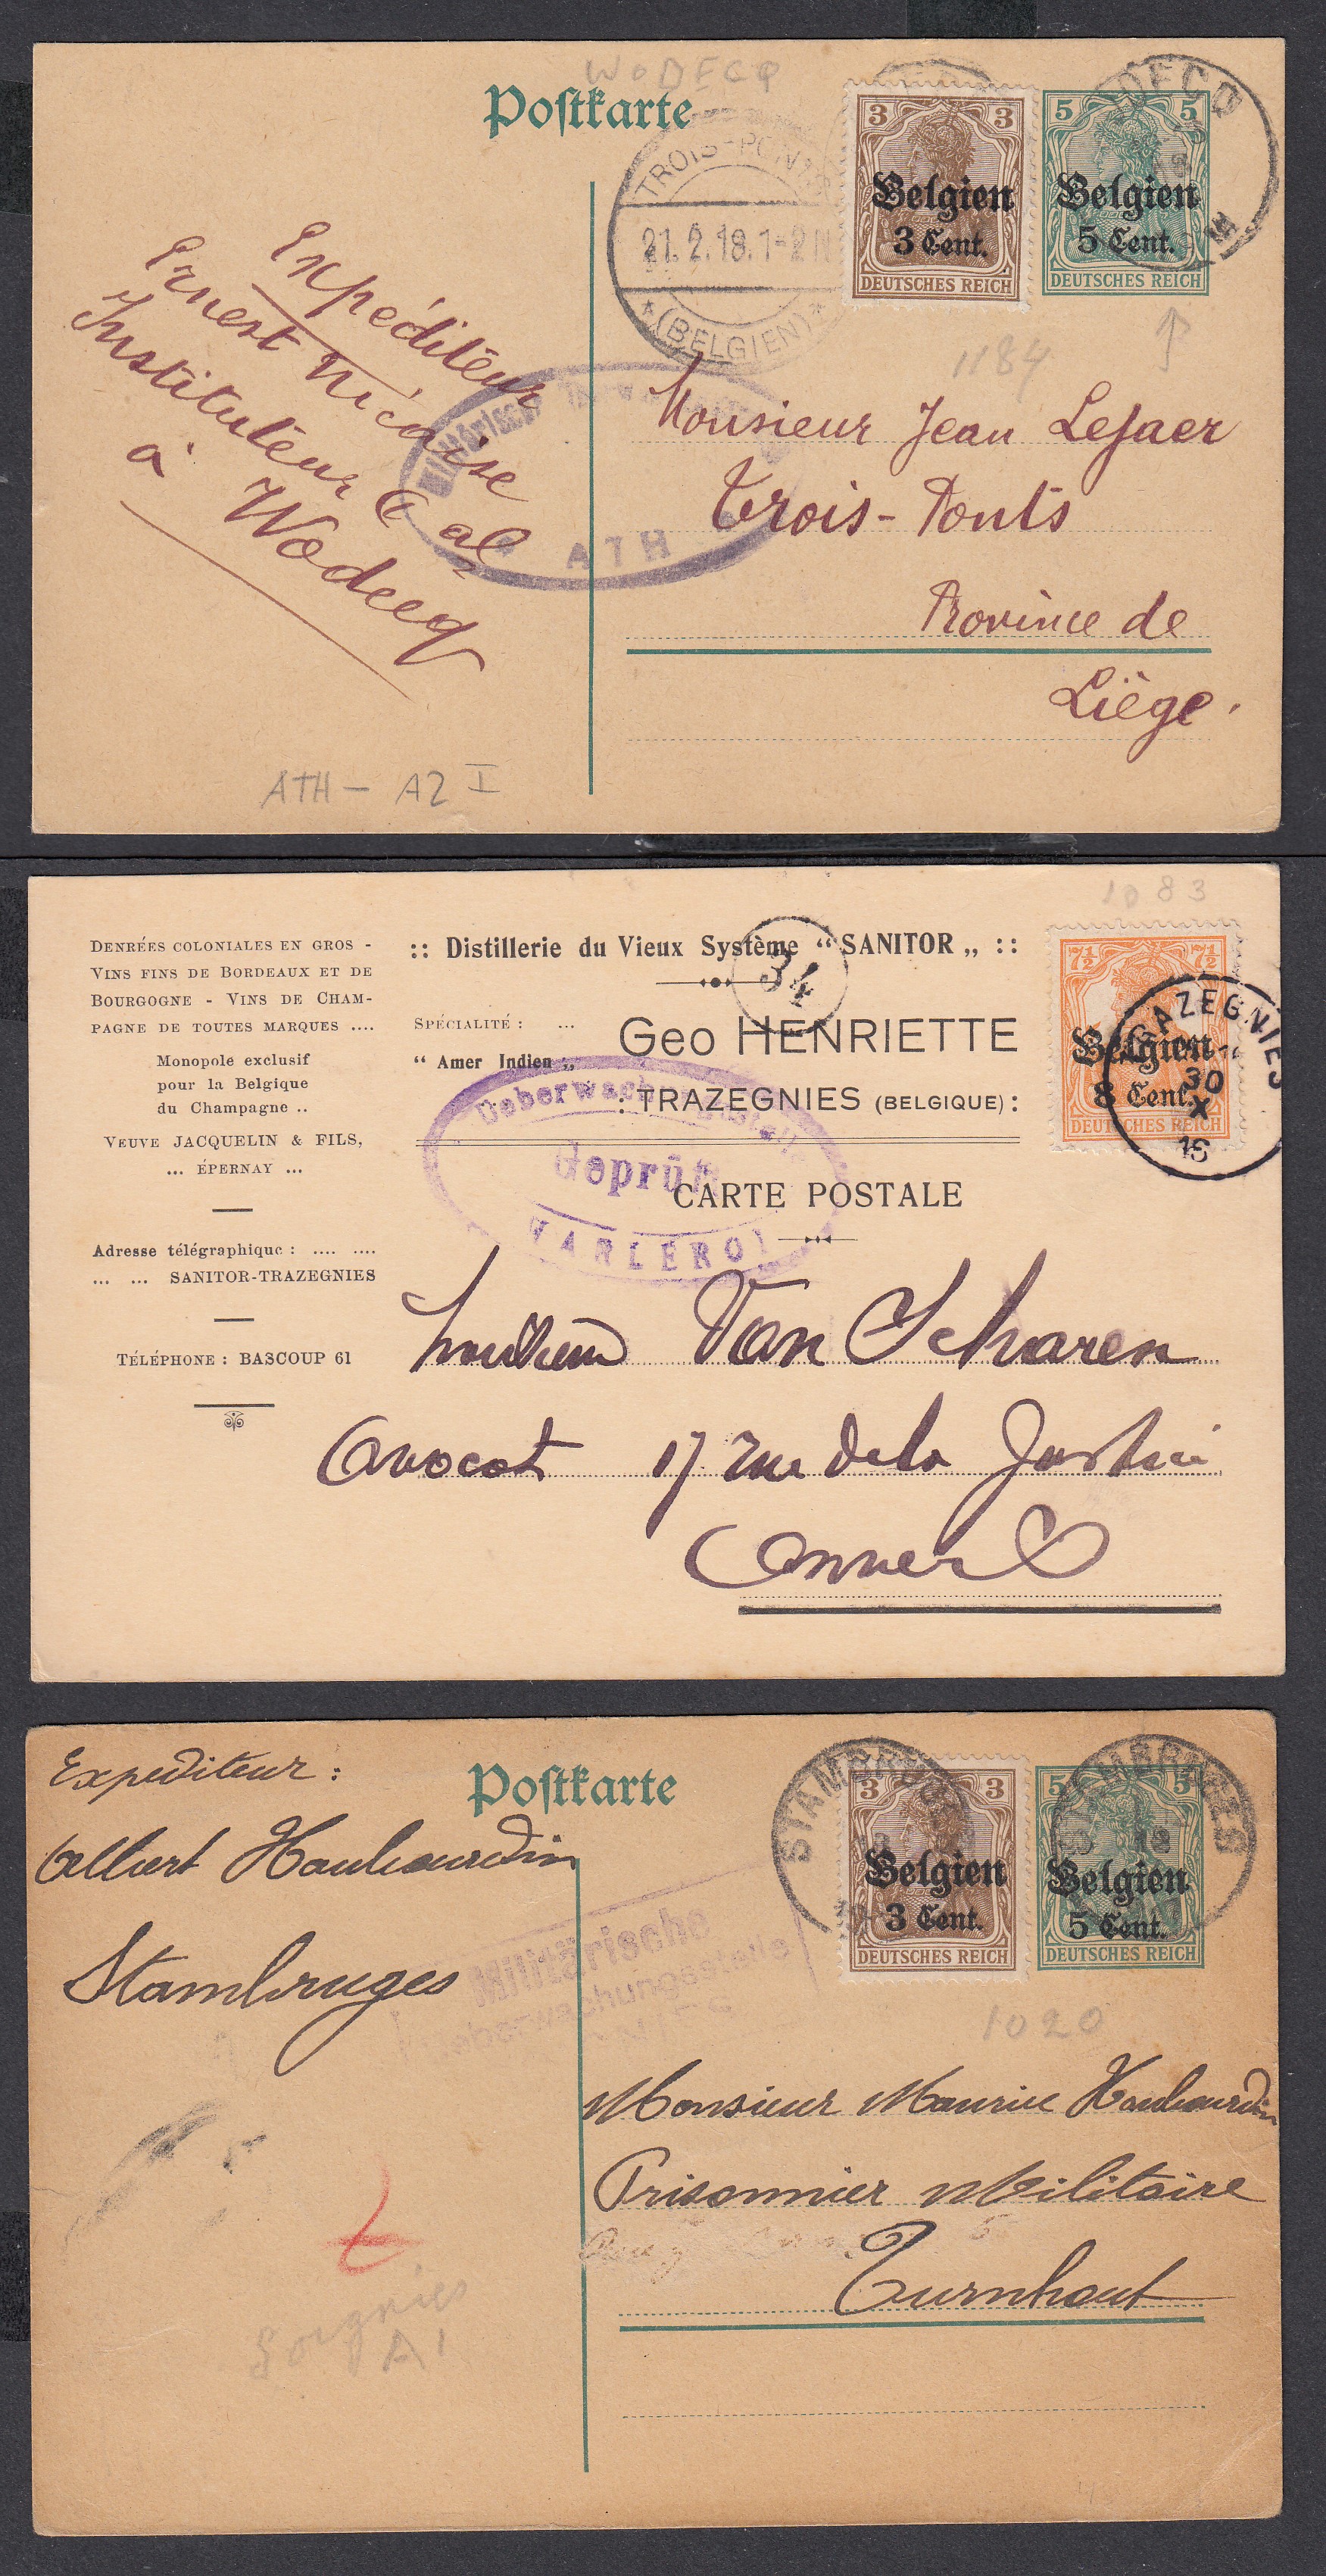 WODECQ
Postkarte
TROIS-PONTS
21.2.18.1-2N
(BELGIEN)
3 3
Belgien
3 Cent.
DEUTSCHES REICH
5 5
Belgien
5 Cent.
DEUTSCHES REICH
1184
Expéditeur
Ernest Nicaise
Instituteur Cal
à Wodecq
ATH
Monsieur Jean Lejaer
Trois-Ponts
Province de
Liège.
ATH — A2 I
1083
DENRÉES COLONIALES EN GROS -
VINS FINS DE BORDEAUX ET DE
BOURGOGNE - VINS DE CHAM-
PAGNE DE TOUTES MARQUES ....
Monopole exclusif
pour la Belgique
du Champagne ..
VEUVE JACQUELIN & FILS,
... ÉPERNAY ...
Adresse télégraphique : .... ....
... ... SANITOR-TRAZEGNIES
TÉLÉPHONE : BASCOUP 61
:: Distillerie du Vieux Système “ SANITOR „ ::
34
SPÉCIALITÉ : ...
“ Amer Indien „
Geo HENRIETTE
: TRAZEGNIES (BELGIQUE) :
Geprüft
CHARLEROI
CARTE POSTALE
7½ 7½
Belgien
8 Cent.
DEUTSCHES REICH
TRAZEGNIES
30
X
16
Monsieur Van Scharen
Avocat 17 rue de la Justice
Anvers
Expediteur :
Albert Haubourdin
Stambruges
Postkarte
STAMBRUGES
3 3
Belgien
3 Cent.
DEUTSCHES REICH
5 5
Belgien
5 Cent.
DEUTSCHES REICH
STAMBRUGES
Militärische
Ueberwachungsstelle
1020
Monsieur Maurice Haubourdin
Prisonnier Militaire
Turnhout
Soignies
A1